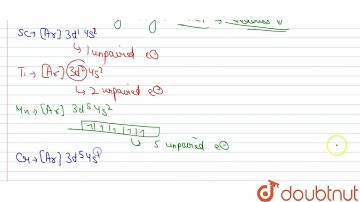 Sc → [Ar] 3d¹ 4s²
↳ 1 unpaired e⊖
Ti → [Ar] 3d² 4s²
↳ 2 unpaired e⊖
Mn → [Ar] 3d⁵ 4s²
1 1 1 1 1
↳ 5 unpaired e⊖
Cr → [Ar] 3d⁵ 4s¹
doubtnut